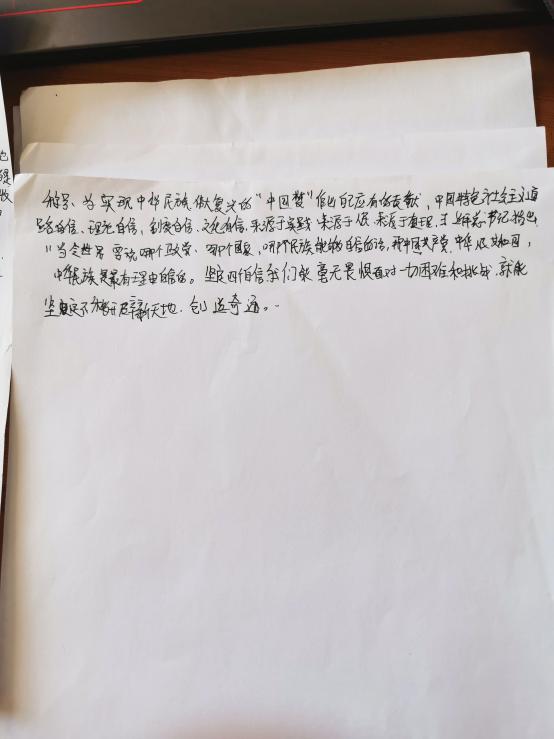 称号、为实现中华民族伟大复兴的"中国梦"作出的应有的贡献，中国特色社会主义道
路自信、理论自信、制度自信、文化自信，来源于实践 来源于人民 来源于真理，书记指出
"当今世界 要说哪个政党、哪个国家，哪个民族能够自信的话，那中国共产党、中华人民共和国，
中华民族是最有理由自信的。坚定四个自信我们就毫无畏惧面对一切困难和挑战，就能
坚定不移开辟新天地、创造奇迹。
提